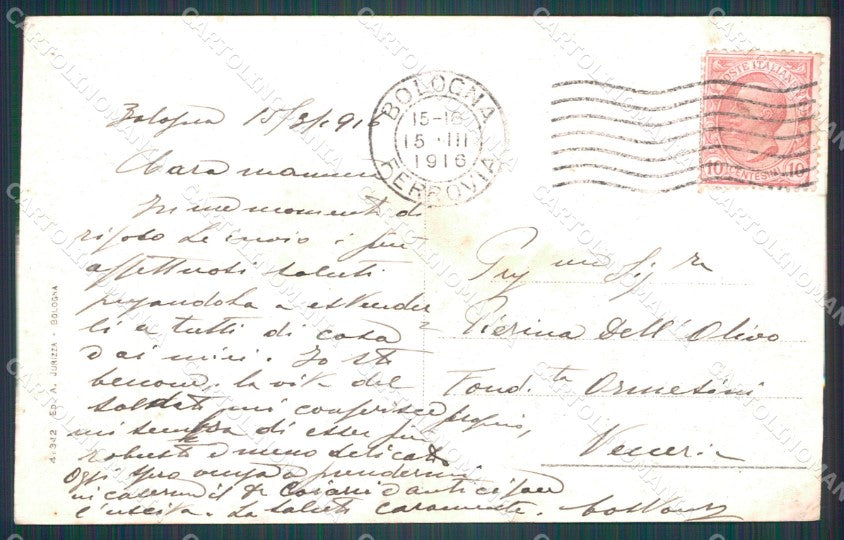 BOLOGNA
15-16
15 · III
1916
FERROVIA
POSTE ITALIANE
10 CENTESIMI 10
Bologna 15/3/1916
Cara mamma
In un momento di
riposo Le invio i piu
affettuosi saluti
pregandola a estender
li a tutti di casa
e ai miei. Io sto
benone, la vita del
soldato mi conferisce proprio,
mi sembra di esser piu
robusto e meno delicato
Oggi spero venga a prendermi
in caserma il e anticipare
l'uscita. La saluto caramente.
Sig ra
Pierina Dell'Olivo
Fond. ta Ormesini
Venezia
4-342 ED. A. JURIZZA - BOLOGNA
CARTOLINOMANIA